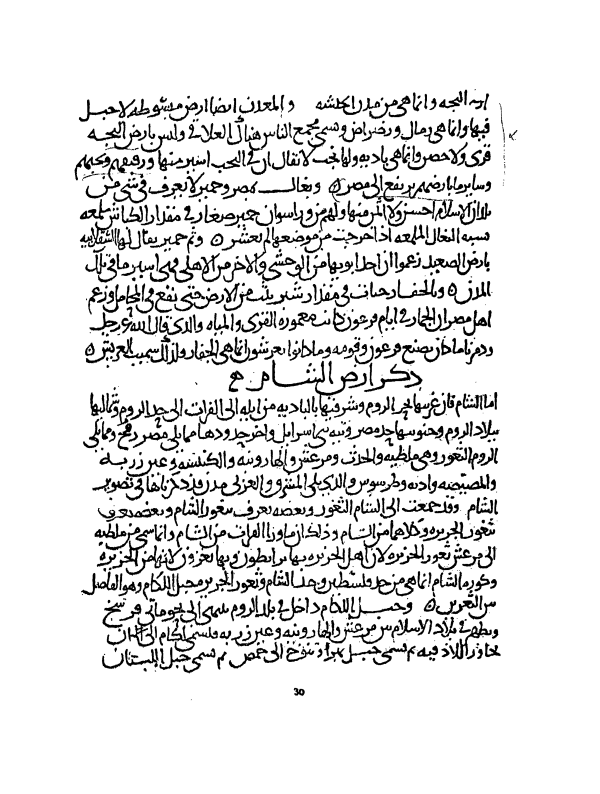 ارض البجه وانما هي من مدن الحبشه والمعدن ايضا ارض مبسوطه لا جبل
فيها وانما هي رمال ورضراض ويسمى مجمع الناس هنالك العلاقي وليس بارض البجه
قرى ولا خصب وانما هي باديه ولها نجب لا يقال ان في النجب اسير منها ورقيقهم ونجبهم
وساير ما بارضهم يرتفع الى مصر ٥ وبمصر بغال وحمير لا يعرف في شي من
بلاد الاسلام احسن ولا اثمن منها ولهم من ورا اسوان حمير صغار في مقدار الكباش ملمعه
تشبه البغال الملمعه اذا خرجت من موضعها لم تعش ٥ ولهم حمير يقال لها السملاقيه
بارض الصعيد زعموا ان احد ابويها من الوحشي والاخر من الاهلي فهي اسير ما في تلك
المدن ٥ وبالجفار حيات في مقدار شبر يثب من الارض حتى يقع في المحامل وزعم
اهل مصر ان الجفار في ايام فرعون كانت معموره بالقرى والمياه والذي قال الله عز وجل
ودمرنا ما كان يصنع فرعون وقومه وما كانوا يعرشون انما هي الجفار ولذلك سميت العريش ٥
ذكر ارض الشام
اما الشام فان غربيها بحر الروم وشرقيها الباديه من ايله الى الفرات الى حد الروم وشماليها
بلاد الروم وجنوبيها حد مصر وتيه بني اسرايل واخر حدودها مما يلي مصر رفح ومما يلي
الروم الثغور وهي ملطيه والحدث ومرعش والهارونيه والكنيسه وعين زربه
والمصيصه وادنه وطرسوس والذي يلي المشرق والغرب مدن قد ذكرناها في تصوير
الشام وقد جمعت الى الشام الثغور وبعضه يعرف بثغور الشام وبعضه يعرف
بثغور الجزيره وكلاهما من الشام وذلك ان ما ورا الفرات من الشام وانما سمي من ملطيه
الى مرعش ثغور الجزيره لان اهل الجزيره بها يرابطون وبها يغزون لانها من الجزيره
وكوره الشام انما هي من حد فلسطين وحد الشام وثغور الجزيره جبل اللكام وهو الفاصل
بين الثغرين ٥ وجبل اللكام داخل في بلد الروم ينتهي الى نحو مائتي فرسخ
ويظهر في بلاد الاسلام بين مرعش والهارونيه وعين زربه فيسمى لكام الى ان
يجاوز اللاذقيه ثم يسمى جبل بهرا وتنوخ الى حمص ثم يسمى جبل اللبنان
30